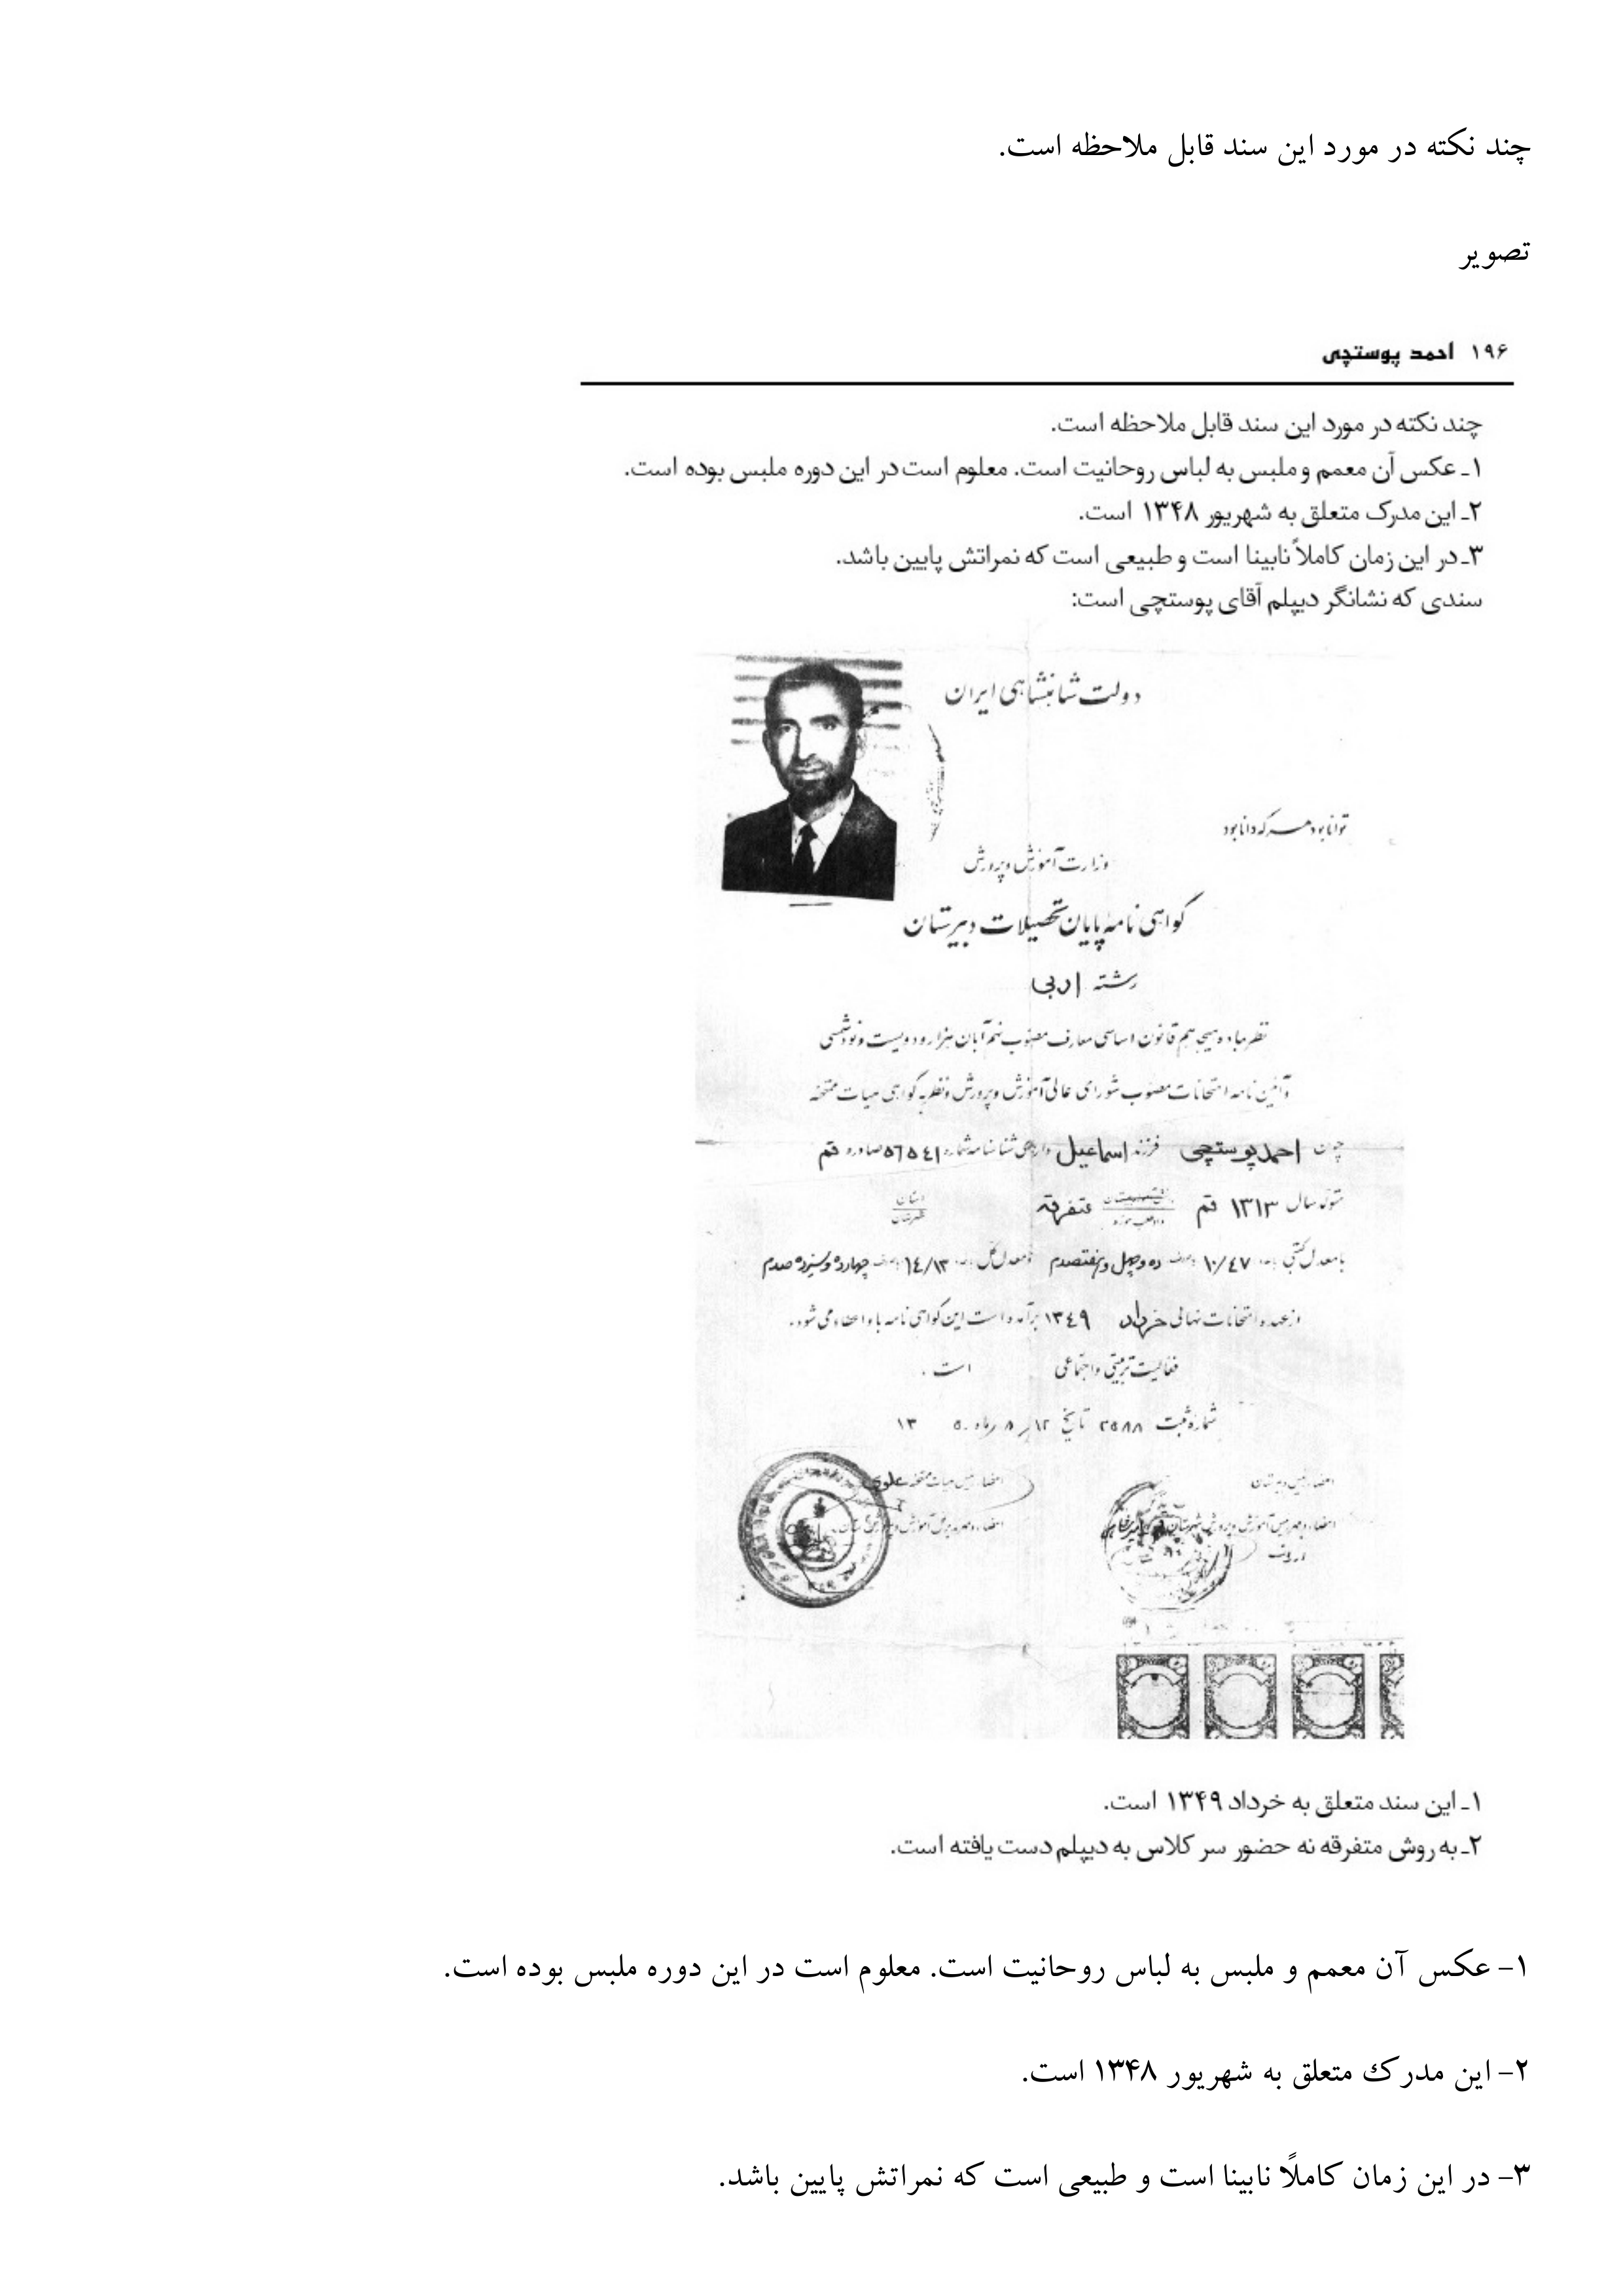 چند نکته در مورد این سند قابل ملاحظه است.
تصویر
۱۹۶ احمد پوستچی
چند نکته در مورد این سند قابل ملاحظه است.
۱ـ عکس آن معمم و ملبس به لباس روحانیت است. معلوم است در این دوره ملبس بوده است.
۲ـ این مدرک متعلق به شهریور ۱۳۴۸ است.
۳ـ در این زمان کاملاً نابینا است و طبیعی است که نمراتش پایین باشد.
سندی که نشانگر دیپلم آقای پوستچی است:
دولت شاهنشاهی ایران
توانا بود هر که دانا بود
وزارت آموزش و پرورش
گواهی نامه پایان تحصیلات دبیرستان
رشته ادبی
نظر بماده هیجدهم قانون اساسی معارف مصوب نهم آبان هزار و دویست و نود شمسی
و آئین نامه امتحانات مصوب شورای عالی آموزش و پرورش و نظر به گواهی هیات ممتحنه
چون احمد پوستچی فرزند اسماعیل دارای شناسنامه شماره ۵۶۵۴۱ صادره قم
متولد سال ۱۳۱۳ قم متفرقه استان
با معدل کتبی ۱۰/۴۷ ده و چهل و هفتصدم و معدل کل ۱۴/۱۳ چهارده و سیزده صدم
از عهده امتحانات نهائی خرداد ۱۳۴۹ برآمده است این گواهی نامه باو اعطاء می شود.
فعالیت تربیتی و اجتماعی است.
شماره ثبت ۲۵۸۸ تاریخ ۱۲ / ۸ ماه ۵۰ ۱۳
امضاء رئیس دبیرستان امضاء رئیس هیات ممتحنه علوی
۱ـ این سند متعلق به خرداد ۱۳۴۹ است.
۲ـ به روش متفرقه نه حضور سر کلاس به دیپلم دست یافته است.
۱- عکس آن معمم و ملبس به لباس روحانیت است. معلوم است در این دوره ملبس بوده است.
۲- این مدرک متعلق به شهریور ۱۳۴۸ است.
۳- در این زمان کاملاً نابینا است و طبیعی است که نمراتش پایین باشد.